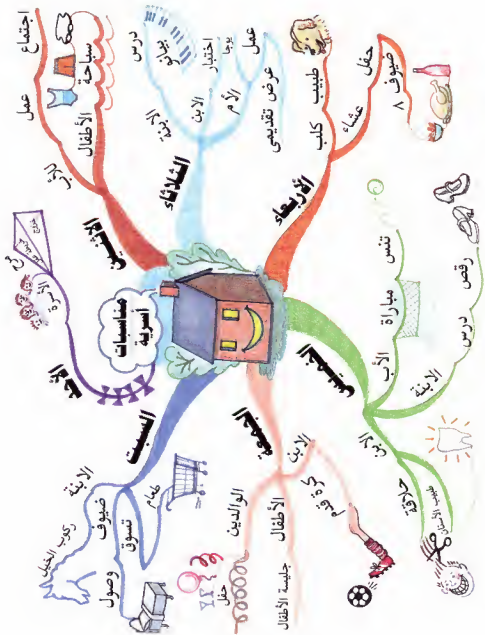 مناسبات
أسرية
الأحد
الأسرة
الاثنين
الأب
عمل
اجتماع
الأطفال
سباحة
الثلاثاء
الابنة
درس
بيانو
الابن
اختبار
الأم
يوجا
عرض تقديمي
عمل
الأربعاء
كلب
طبيب
عشاء
حفل
ضيوف ٨
الخميس
الأب
مباراة
تنس
الابنة
درس
رقص
الابن
حلاقة
طبيب الأسنان
الجمعة
الابن
كرة قدم
الأطفال
جليسة الأطفال
الوالدين
حفل
السبت
الابنة
ركوب الخيل
ضيوف
وصول
تسوق
طعام